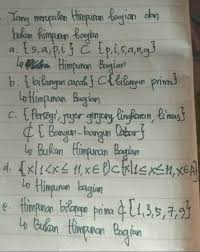 Yang merupakan Himpunan bagian dan
bukan himpunan bagian
a. {s,a,p,i} ⊂ {p,i,s,a,n,g}
↳ Himpunan Bagian
b. {bilangan cacah} ⊂ {bilangan prima}
↳ Himpunan Bagian
c. {Persegi, jajar genjang, lingkaran, limas}
⊄ {Bangun-bangun Datar}
↳ Bukan Himpunan Bagian
d. {x|1<x≤11, x∈P} ⊂ {x|1≤x≤11, x∈A}
↳ Himpunan bagian
e. Himpunan bilangan prima ⊄ {1,3,5,7,9}
↳ Bukan Himpunan Bagian